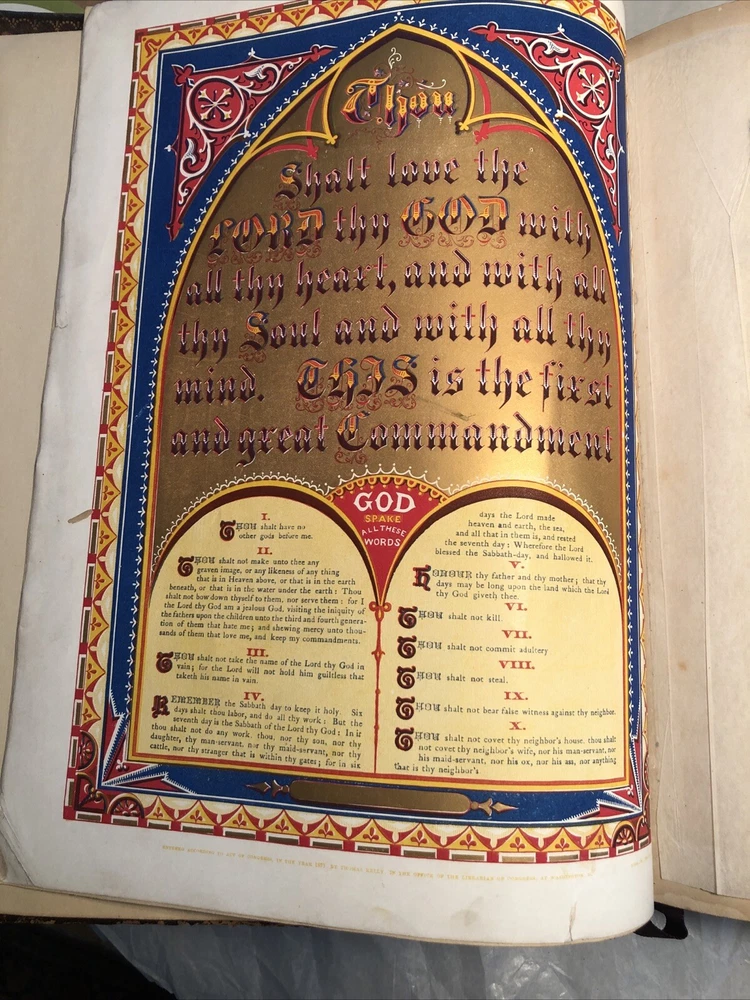 Thou
Shalt love the
LORD thy GOD with
all thy heart, and with all
thy Soul and with all thy
mind. THIS is the first
and great Commandment
GOD
SPAKE
ALL THESE
WORDS
I.
THOU shalt have no
other gods before me.
II.
THOU shalt not make unto thee any
graven image, or any likeness of any thing
that is in Heaven above, or that is in the earth
beneath, or that is in the water under the earth: Thou
shalt not bow down thyself to them, nor serve them: for I
the Lord thy God am a jealous God, visiting the iniquity of
the fathers upon the children unto the third and fourth genera-
tion of them that hate me; and shewing mercy unto thou-
sands of them that love me, and keep my commandments.
III.
THOU shalt not take the name of the Lord thy God in
vain; for the Lord will not hold him guiltless that
taketh his name in vain.
IV.
REMEMBER the Sabbath day to keep it holy. Six
days shalt thou labor, and do all thy work: But the
seventh day is the Sabbath of the Lord thy God: In it
thou shalt do any work, thou, nor thy son, nor thy
daughter, thy man-servant, nor thy maid-servant, nor thy
cattle, nor thy stranger that is within thy gates; for in six
days the Lord made
heaven and earth, the sea,
and all that in them is, and rested
the seventh day: Wherefore the Lord
blessed the Sabbath-day, and hallowed it.
V.
HONOUR thy father and thy mother; that thy
days may be long upon the land which the Lord
thy God giveth thee.
VI.
THOU shalt not kill.
VII.
THOU shalt not commit adultery
VIII.
THOU shalt not steal.
IX.
THOU shalt not bear false witness against thy neighbor.
X.
THOU shalt not covet thy neighbor's house, thou shalt
not covet thy neighbor's wife, nor his man-servant, nor
his maid-servant, nor his ox, nor his ass, nor anything
that is thy neighbor's
ENTERED ACCORDING TO ACT OF CONGRESS, IN THE YEAR BY THOMAS IN THE OFFICE OF THE LIBRARIAN OF CONGRESS, AT WASHINGTON